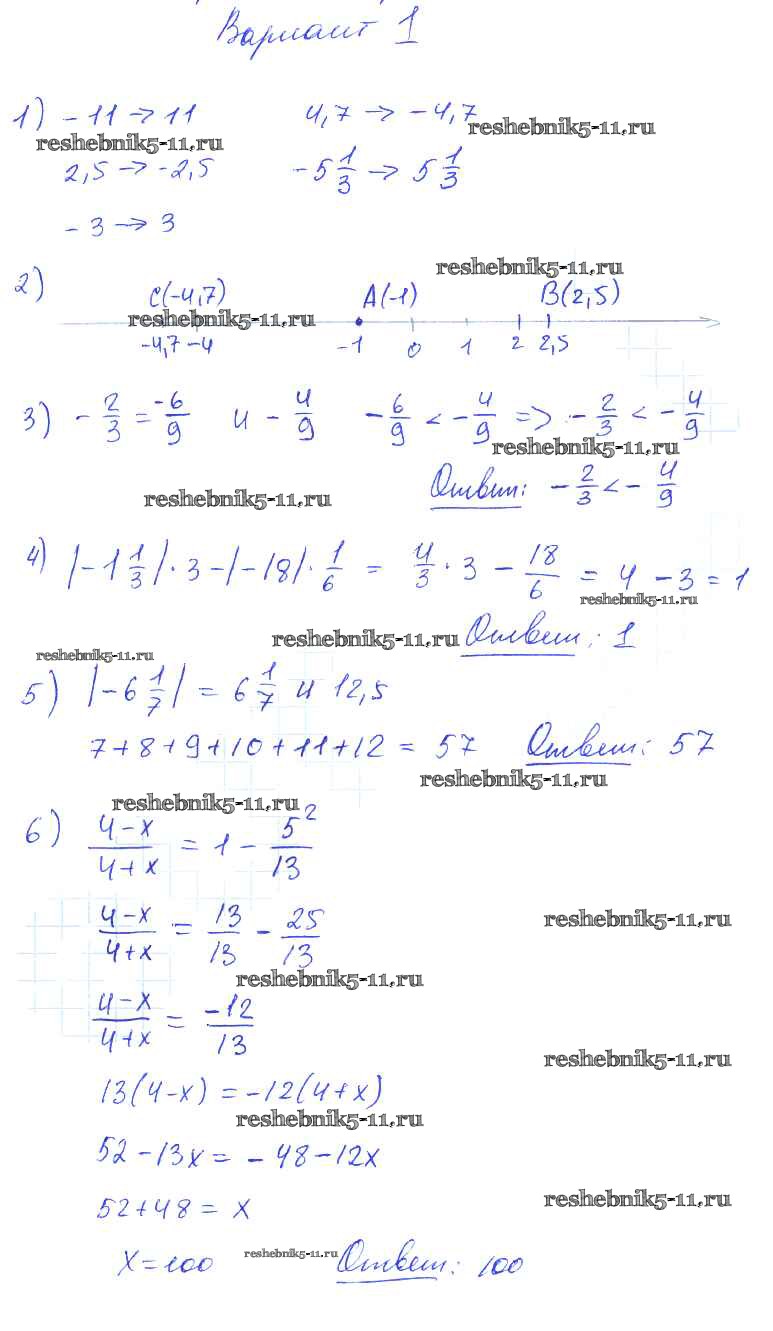 Вариант 1
1) -11 → 11 4,7 → -4,7
reshebnik5-11.ru reshebnik5-11.ru
2,5 → -2,5 -5 1/3 → 5 1/3
-3 → 3
reshebnik5-11.ru
2) C(-4,7) A(-1) B(2,5)
reshebnik5-11.ru
-4,7 -4 -1 0 1 2 2,5
3) -2/3 = -6/9 и -4/9 -6/9 < -4/9 => -2/3 < -4/9
reshebnik5-11.ru
Ответ: -2/3 < -4/9
reshebnik5-11.ru
4) |-1 1/3| · 3 - |-18| · 1/6 = 4/3 · 3 - 18/6 = 4 - 3 = 1
reshebnik5-11.ru
reshebnik5-11.ru Ответ: 1
reshebnik5-11.ru
5) |-6 1/7| = 6 1/7 и 12,5
7+8+9+10+11+12 = 57 Ответ: 57
reshebnik5-11.ru
reshebnik5-11.ru
6) (4-x)/(4+x) = 1 - 5²/13
(4-x)/(4+x) = 13/13 - 25/13
reshebnik5-11.ru
reshebnik5-11.ru
(4-x)/(4+x) = -12/13
reshebnik5-11.ru
13(4-x) = -12(4+x)
reshebnik5-11.ru
52 - 13x = -48 - 12x
52+48 = x
reshebnik5-11.ru
x = 100 reshebnik5-11.ru Ответ: 100